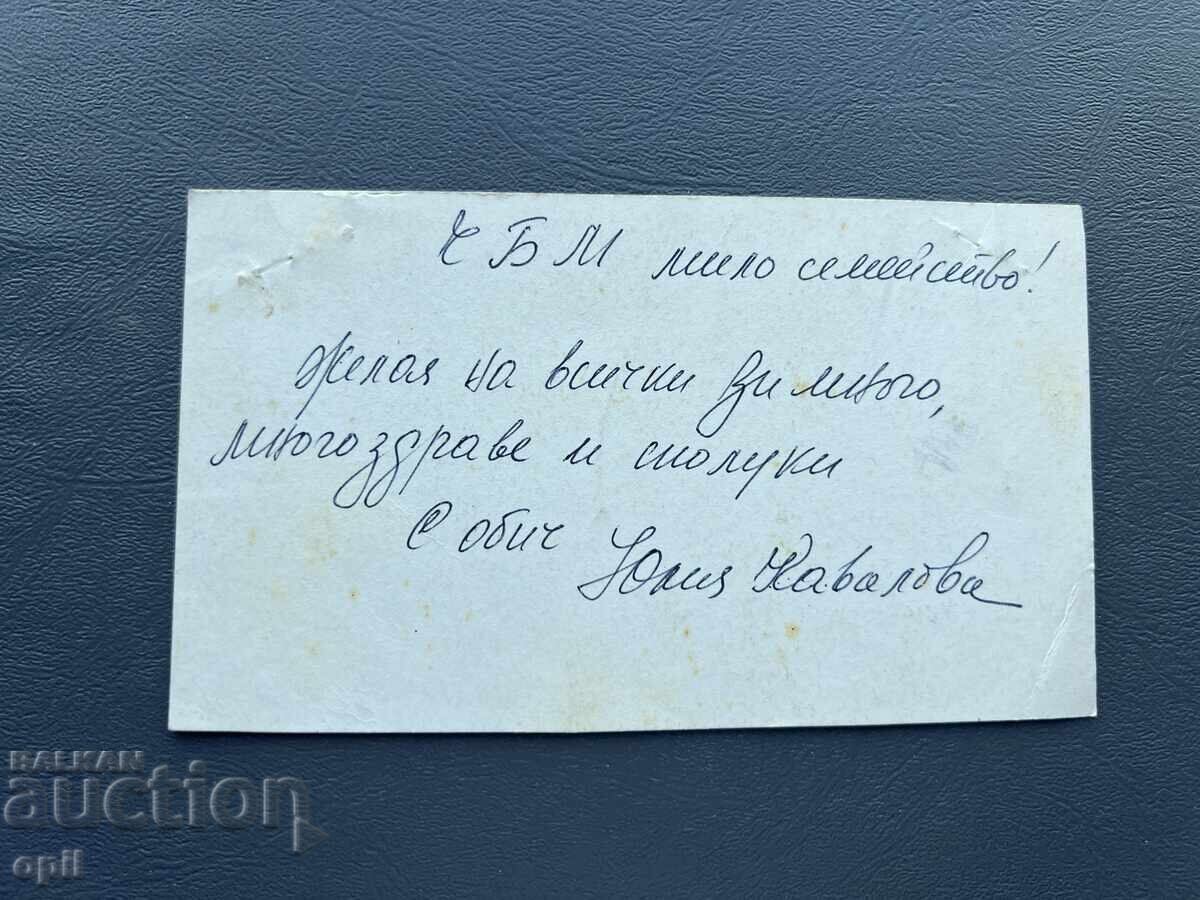 Ч Б М мило семейство!
Желая на всички Ви много,
много здраве и сполуки
С обич
Юлия Кавалова
BALKAN
auction
opil